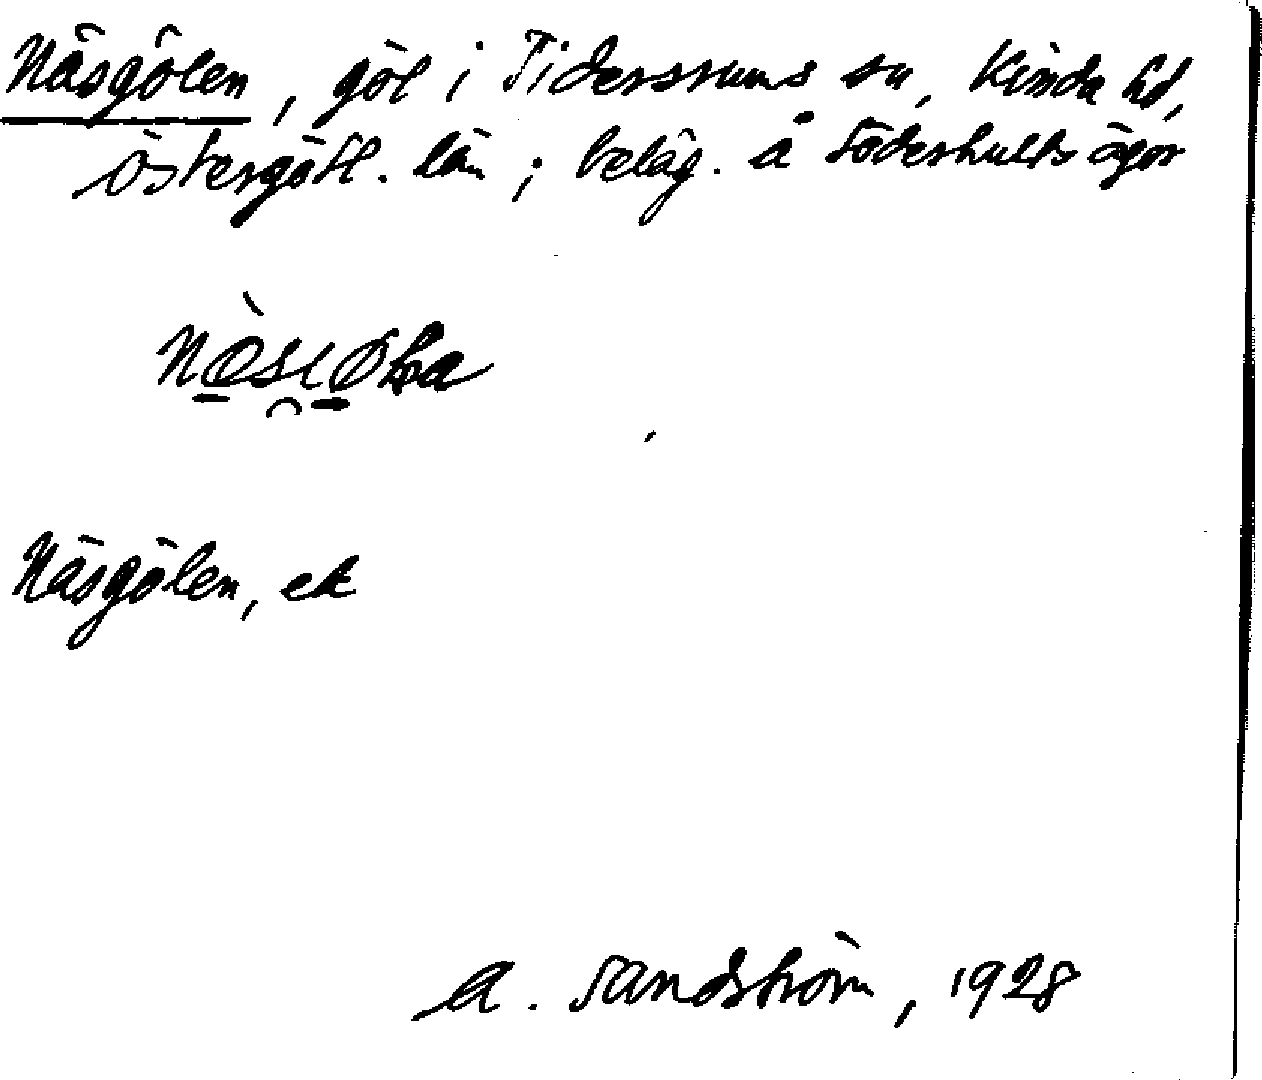 Näsgölen, göl i Tidersrums sn, Kinda hd,
Östergötl. län; beläg. å Söderhults ägor
Näsgölen, ek
A. Sandström, 1928